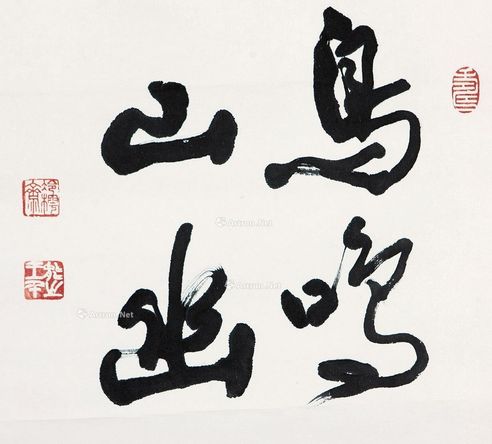 鳥鳴
山幽
Artron.Net
Artron.Net